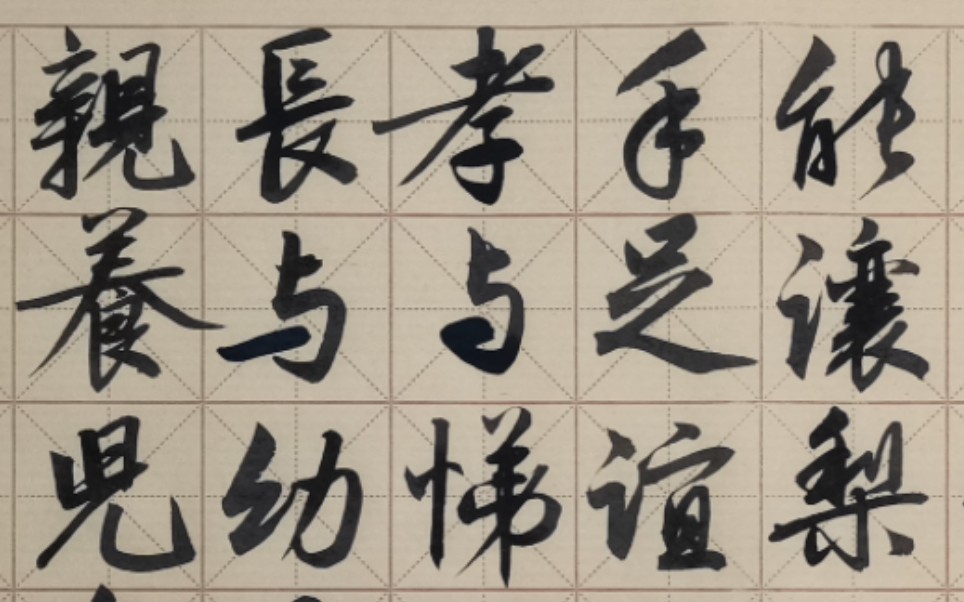 能讓梨
手足誼
孝与悌
長与幼
親養兒